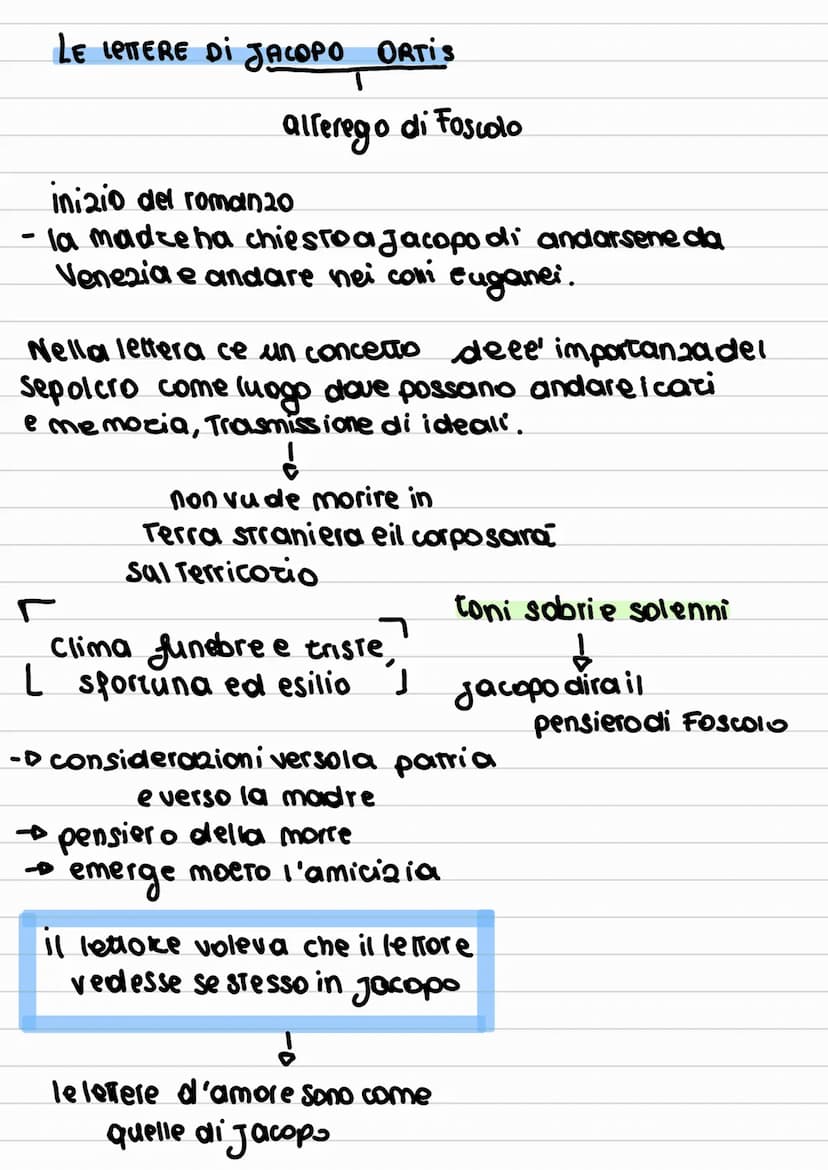 LE LETTERE DI JACOPO ORTIS
alterego di Foscolo
inizio del romanzo
- la madre ha chiesto a Jacopo di andarsene da
Venezia e andare nei colli Euganei.
Nella lettera ce un concetto dell' importanza del
sepolcro come luogo dove possano andare i cari
e memoria, trasmissione di ideali.
non vude morire in
terra straniera e il corpo sarà
sul territorio
toni sobri e solenni
clima funebre e triste,
sfortuna ed esilio
Jacopo dira il
pensiero di Foscolo
→ considerazioni verso la patria
e verso la madre
→ pensiero della morte
→ emerge molto l'amicizia
il lettore voleva che il lettore
vedesse se stesso in Jacopo
le lettere d'amore sono come
quelle di Jacopo